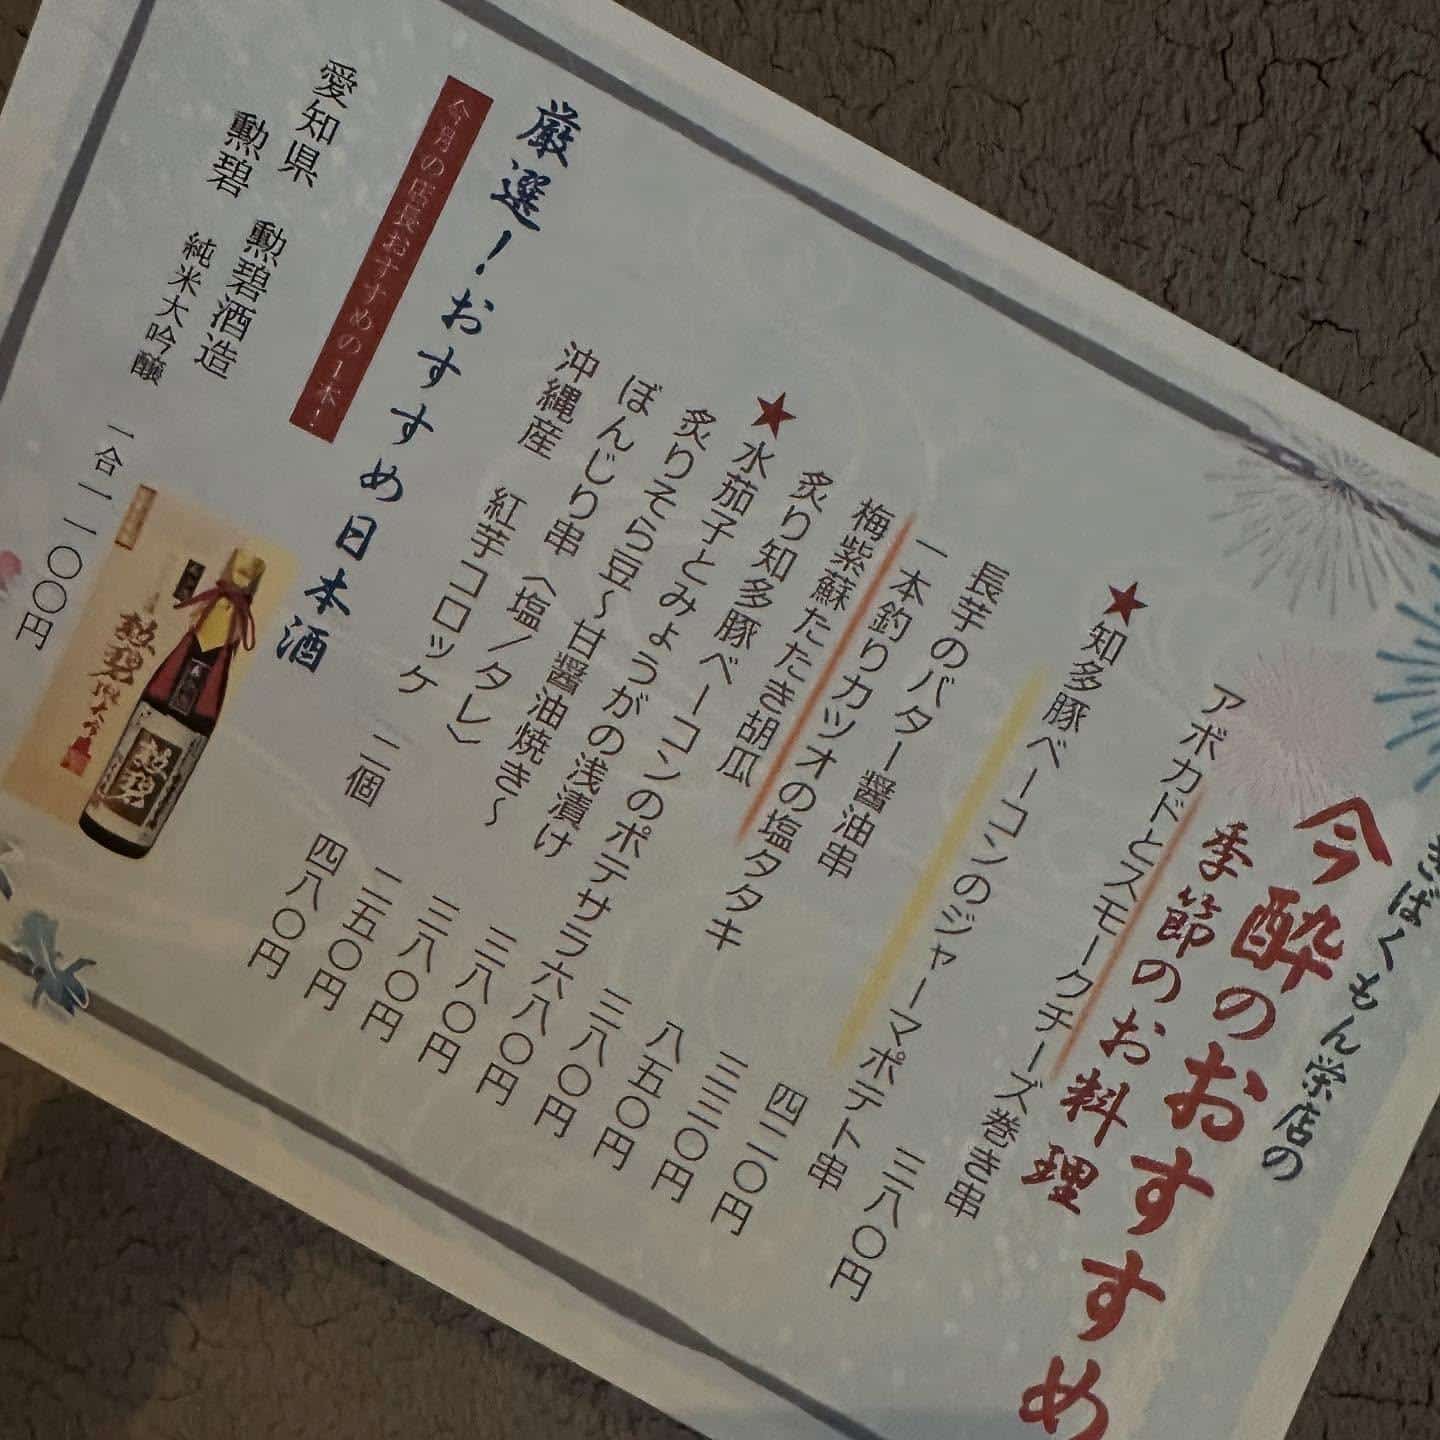 ばくもん栄店の
今酔のおすすめ
季節のお料理
アボカドとスモークチーズ巻き串 三八〇円
★知多豚ベーコンのジャーマポテト串 四二〇円
長芋のバター醤油串 三三〇円
一本釣りカツオの塩タタキ 八五〇円
梅紫蘇たたき胡瓜 三八〇円
★炙り知多豚ベーコンのポテサラ六八〇円
水茄子とみょうがの浅漬け 三八〇円
炙りそら豆～甘醤油焼き～ 三八〇円
ぼんじり串〈塩/タレ〉 二五〇円
沖縄産 紅芋コロッケ 二個 四八〇円
厳選!おすすめ日本酒
今月の店長おすすめの1本!
愛知県 勲碧酒造
勲碧 純米大吟醸 一合一一〇〇円
勲碧
勲碧